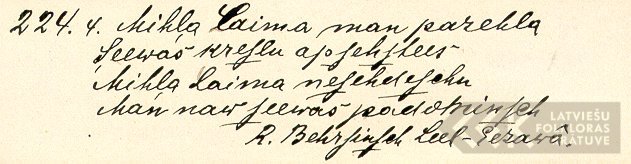 224. 4. Mihļa Laima man parehla
Seewas krehslu apsehstees
Mihļa Laima nesehdeschu
Man naw seewas padominsch
R. Behrsinsch Leel-Sezawâ.
LATVIEŠU
FOLKLORAS
KRĀTUVE